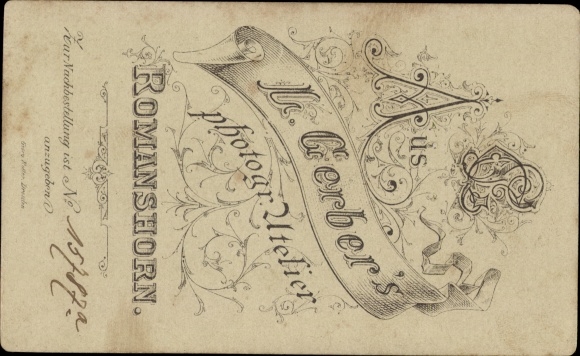 Aus
M. Gerber's
photogr. Atelier
ROMANSHORN.
Zur Nachbestellung ist No 15787a
anzugeben.